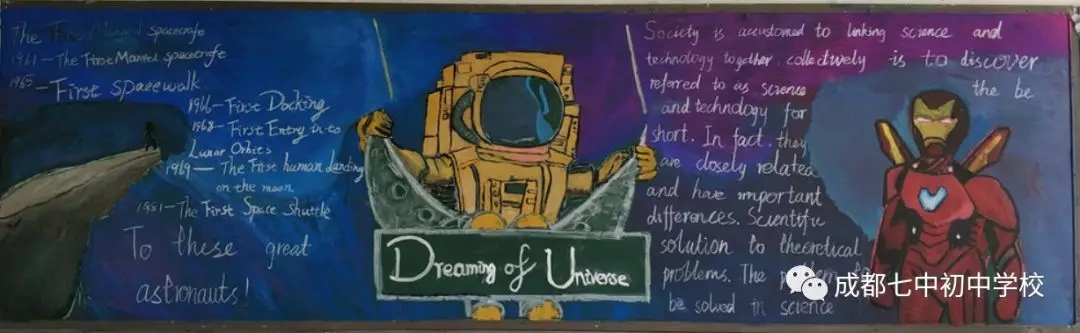 The First Manned spacecrafe
1961—The First Manned spacecrafe
1965—First spacewalk
1966—First Docking
1968—First Entry in to
Lunar Orbits
1969—The First human landing
on the moon
1981—The First Space Shuttle
To these great
astronauts!
Dreaming of Universe
Society is accustomed to linking science and
technology together. collectively is to discover
referred to as science the be
and technology for
short. In fact, they
are closely related
and have important
differences. Scientific
solution to theoretical
problems. The problem
be solved in science
成都七中初中学校